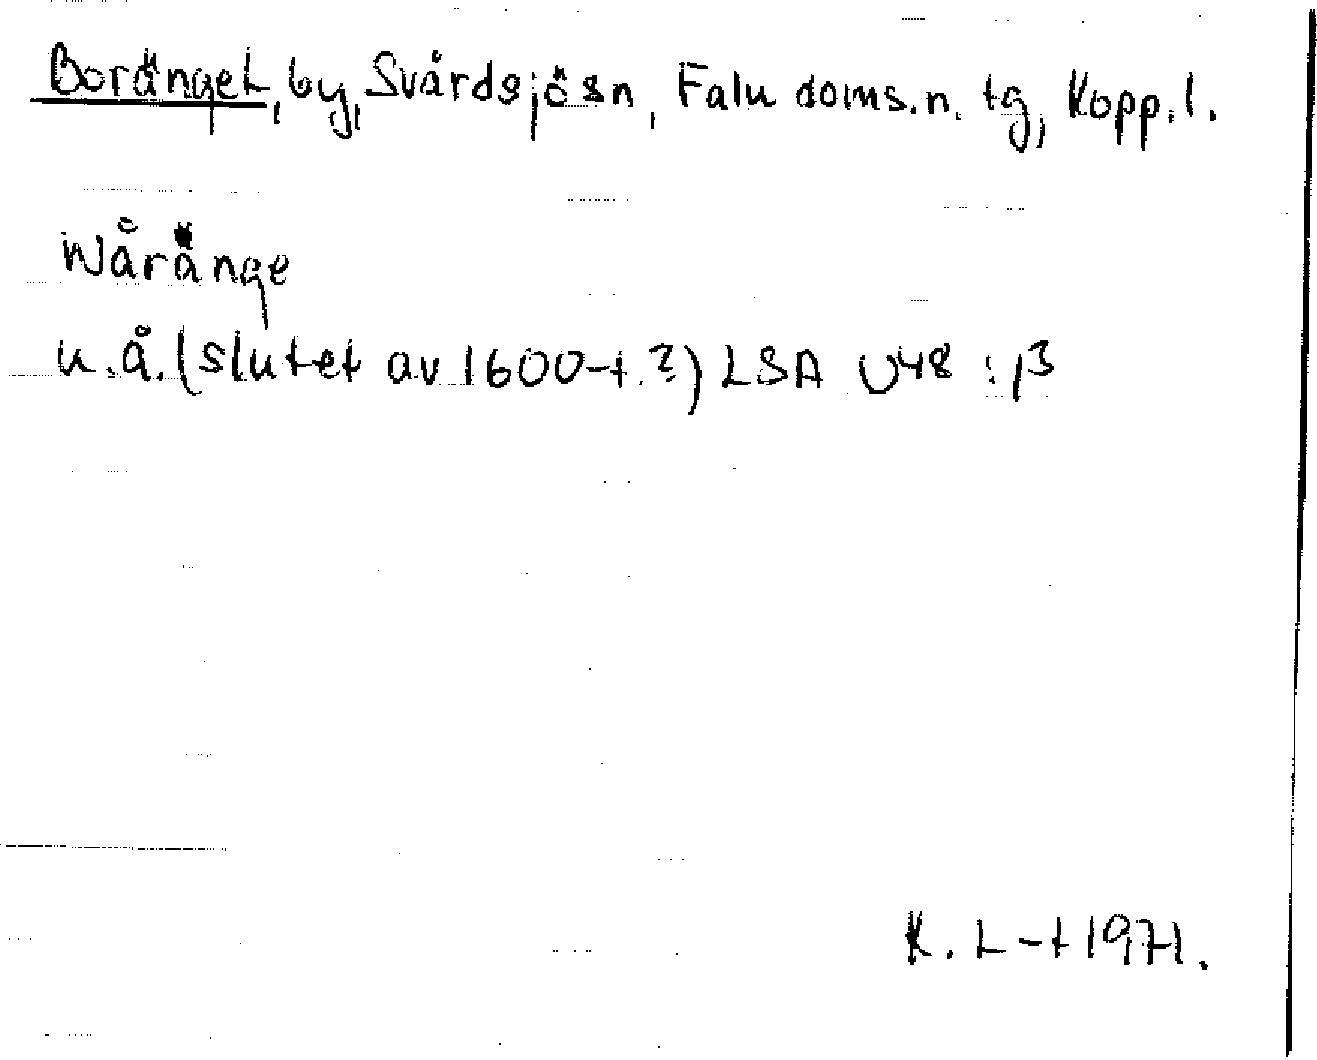 Boränget, by, Svärdsjösn, Falu doms.n. tg, Kopp.l.
Wåränge
u.å. (slutet av 1600-t.?) LSA U48 : β
K. L-t 1971.